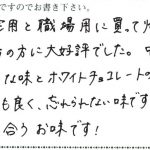 ですのでお書き下さい。
宅用と職場用に買って
の方に大好評でした。
な味とホワイトチョコレートの
も良く、忘れられない味です
合うお味です!